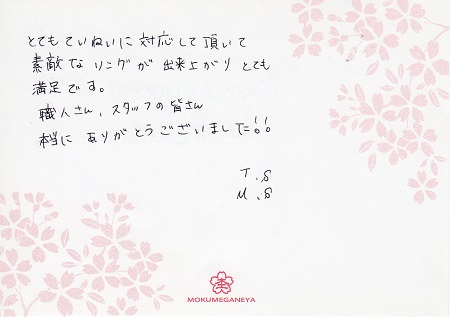 とてもていねいに対応して頂いて
素敵なリングが出来上がりとても
満足です。
職人さん、スタッフの皆さん
本当にありがとうございました!!
T.S
M.S
MOKUMEGANEYA